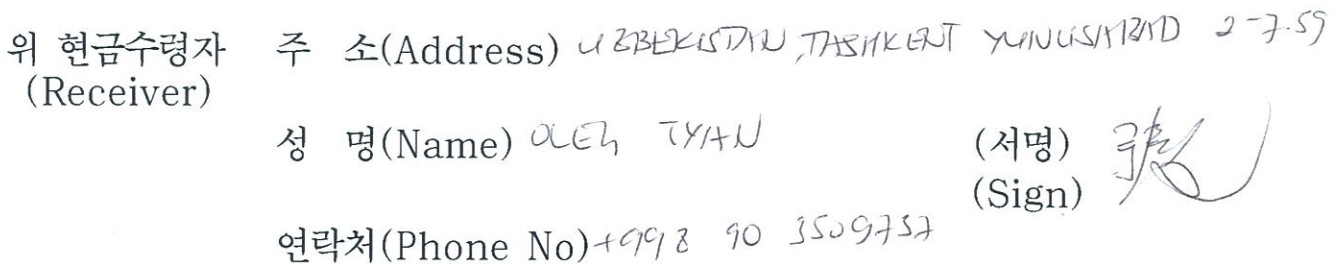 위 현금수령자 주 소(Address) UZBEKISTAN, TASHKENT YUNUSABAD 2-7-59
(Receiver)
성 명(Name) OLEG TYAN (서명)
(Sign)
연락처(Phone No) +998 90 3509737